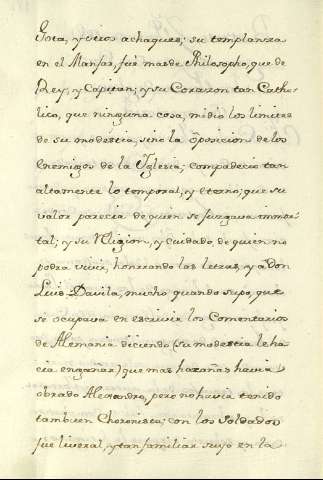 Gota, y otros achaques; su templanza
en el Manjar, fué mas de Philosopho, que de
Rey, y Capitan; y su Corazon tan Catho-
lico, que ninguna cosa, midio los limites
de su modestia, sino la oposicion de los
Enemigos de la Yglesia; compadecio tan
altamente lo temporal, y eterno; que su
valor parecia de quien se jusgava immor-
tal; y su Religion, y cuidado de quien no
podia vivir, honrando las letras, y a Don
Luis Davila, mucho quando supo, que
se ocupava en escrivir los Comentarios
de Alemania diciendo (su modestia le ha-
cia engañar) que mas hazañas havia
obrado Alexandro, pero no havia tenido
tambuen Choronista; con los Soldados
fue liveral, y tan familiar suyo en la